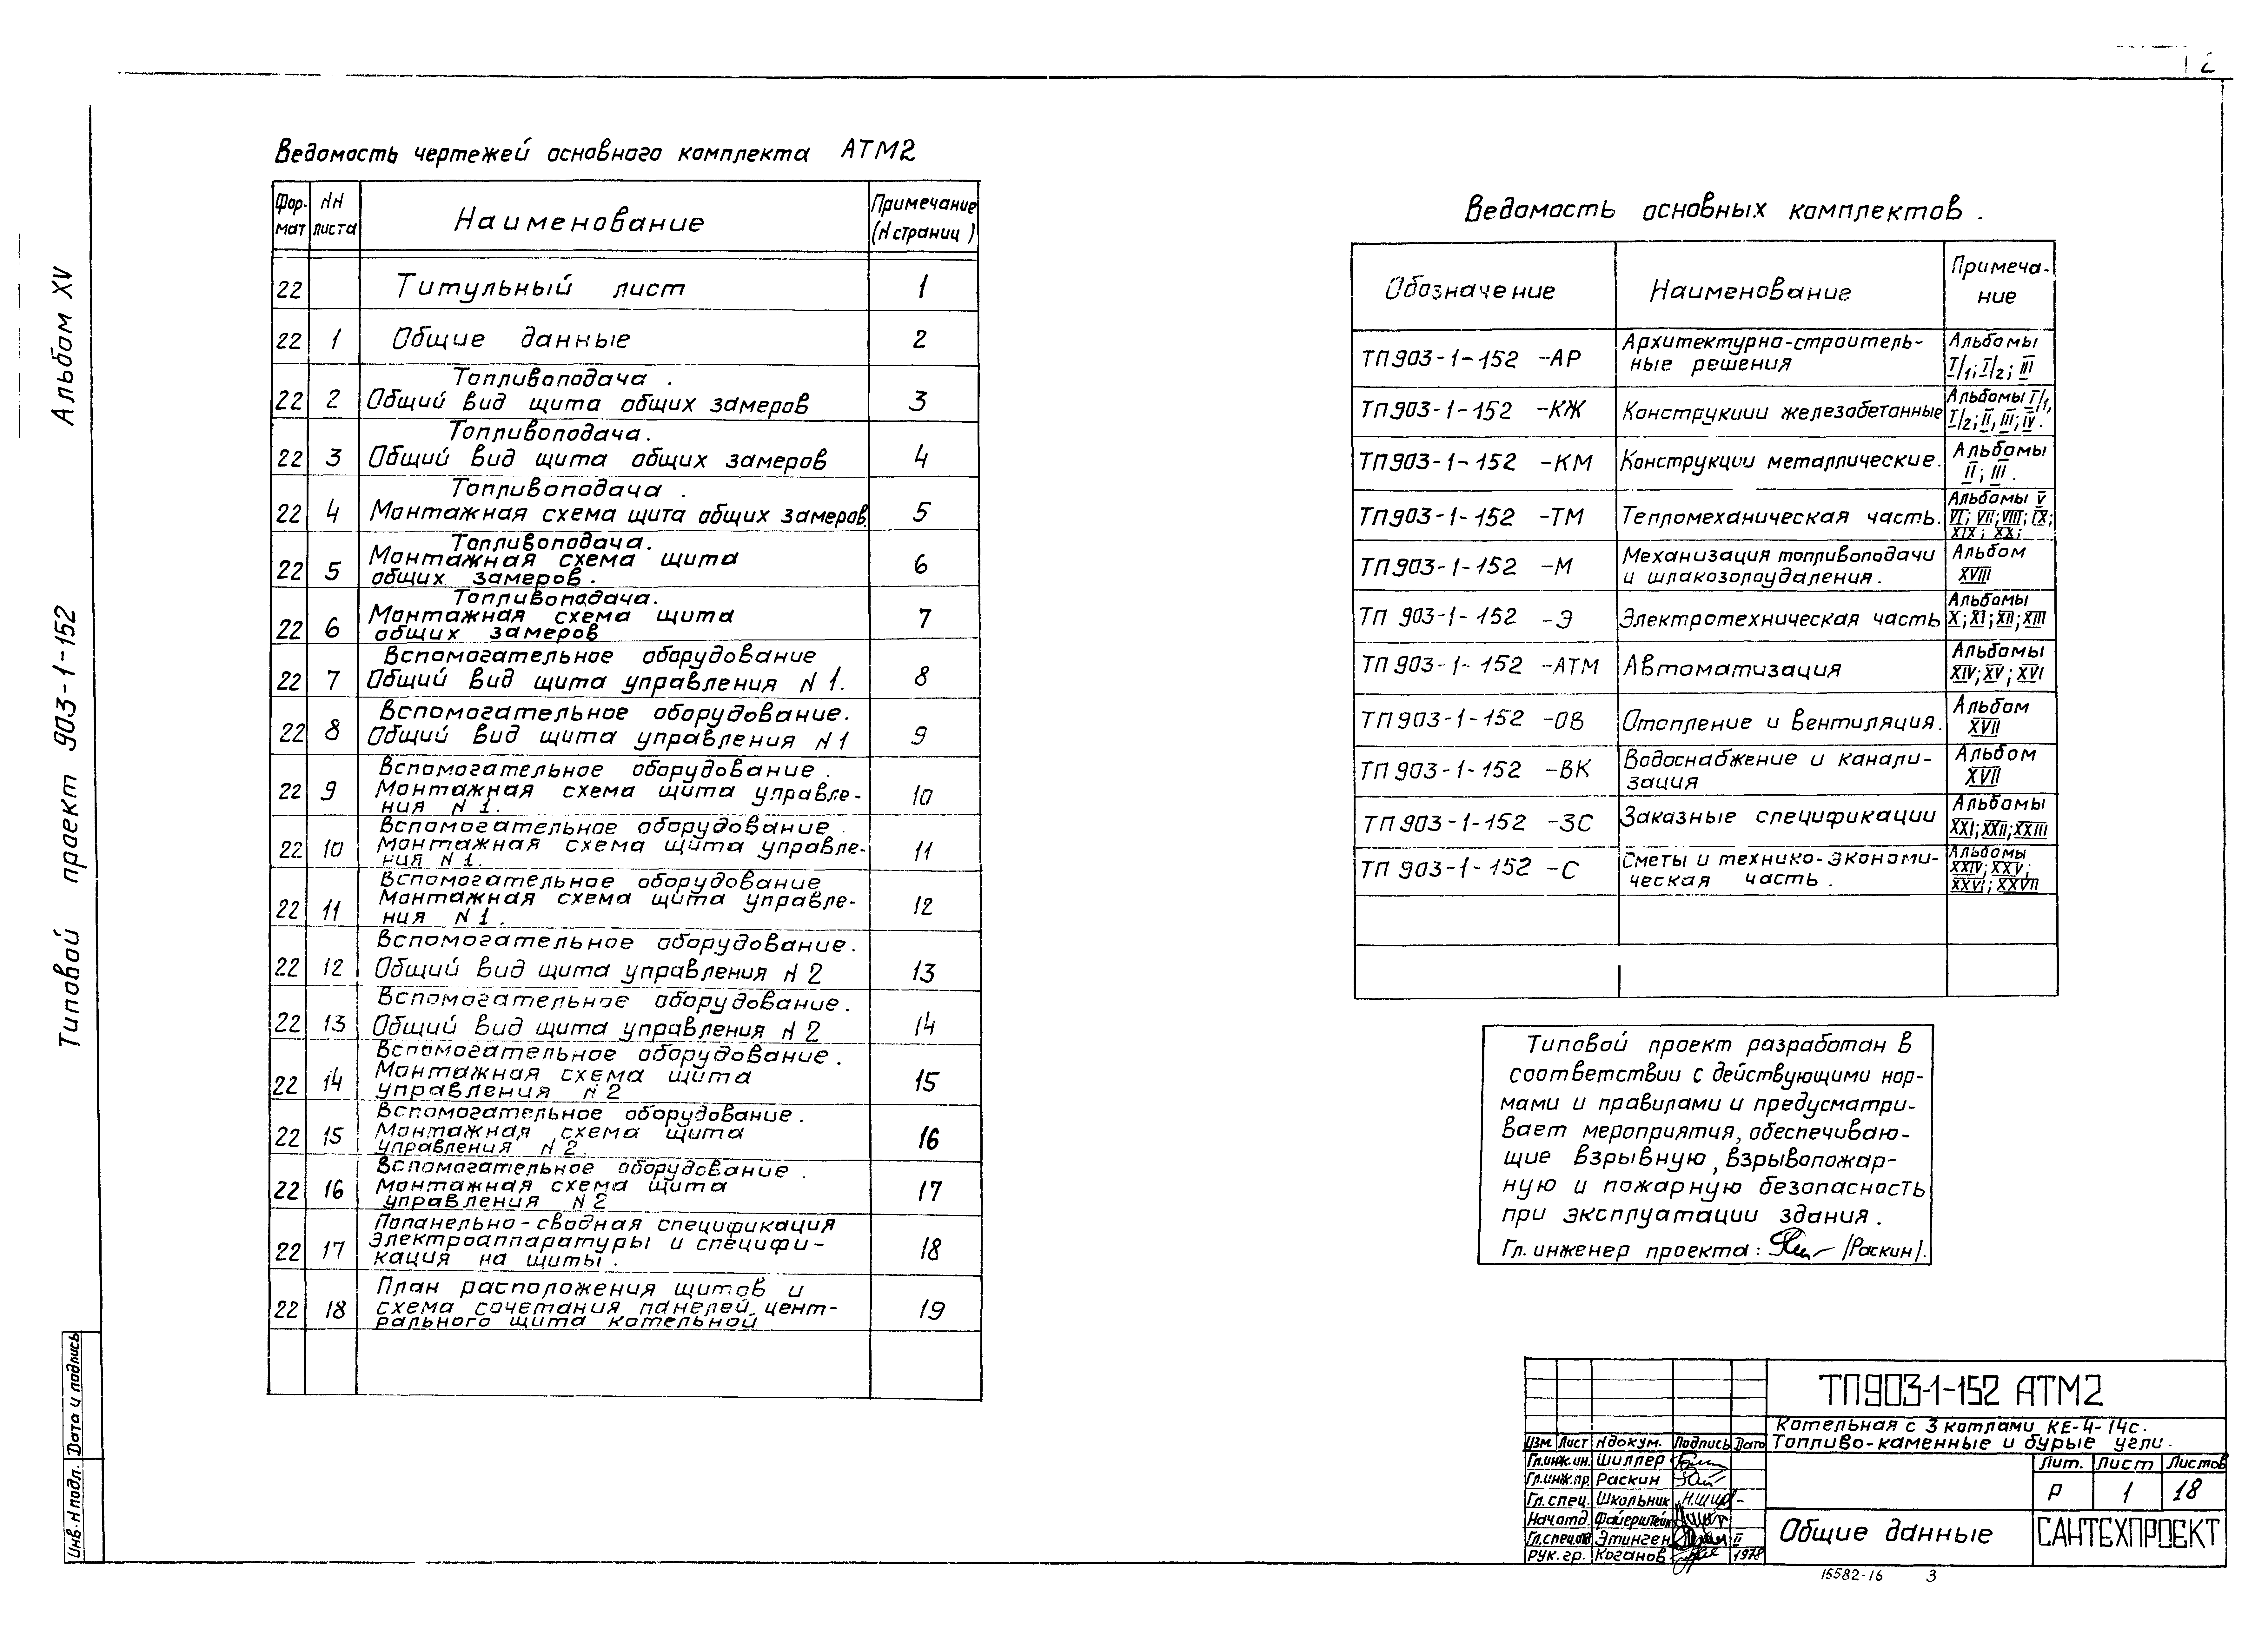 2
Альбом XV
Типовой проект 903-1-152
Инв.N подл. Дата и подпись
Ведомость чертежей основного комплекта АТМ2
Фор-мат NN листа Наименование Примечание (N страниц)
22 Титульный лист 1
22 1 Общие данные 2
Топливоподача.
22 2 Общий вид щита общих замеров 3
Топливоподача.
22 3 Общий вид щита общих замеров 4
Топливоподача.
22 4 Монтажная схема щита общих замеров. 5
Топливоподача.
22 5 Монтажная схема щита 6
общих замеров.
Топливоподача.
22 6 Монтажная схема щита 7
общих замеров
Вспомогательное оборудование
22 7 Общий вид щита управления N 1. 8
Вспомогательное оборудование.
22 8 Общий вид щита управления N 1 9
Вспомогательное оборудование.
22 9 Монтажная схема щита управле- 10
ния N 1.
Вспомогательное оборудование.
22 10 Монтажная схема щита управле- 11
ния N 1.
Вспомогательное оборудование
22 11 Монтажная схема щита управле- 12
ния N 1.
Вспомогательное оборудование.
22 12 Общий вид щита управления N 2 13
Вспомогательное оборудование.
22 13 Общий вид щита управления N 2 14
Вспомогательное оборудование.
22 14 Монтажная схема щита 15
управления N 2
Вспомогательное оборудование.
22 15 Монтажная схема щита 16
управления N 2.
Вспомогательное оборудование.
22 16 Монтажная схема щита 17
управления N 2
Попанельно-сводная спецификация
22 17 электроаппаратуры и специфи- 18
кация на щиты.
План расположения щитов и
22 18 схема сочетания панелей цент- 19
рального щита котельной
Ведомость основных комплектов.
Обозначение Наименование Примеча-ние
ТП903-1-152 -АР Архитектурно-строитель- Альбомы
ные решения I/1; I/2; III
ТП903-1-152 -КЖ Конструкции железобетонные Альбомы I/1,
I/2; II, III; IV.
ТП903-1-152 -КМ Конструкции металлические. Альбомы
II; III.
ТП903-1-152 -ТМ Тепломеханическая часть. Альбомы V
VI; VII; VIII; IX;
XIX; XX;
ТП903-1-152 -М Механизация топливоподачи Альбом
и шлакозолоудаления. XVIII
ТП 903-1-152 -Э Электротехническая часть Альбомы
X; XI; XII; XIII
ТП 903-1-152 -АТМ Автоматизация Альбомы
XIV; XV; XVI
ТП 903-1-152 -ОВ Отопление и вентиляция. Альбом
XVII
ТП 903-1-152 -ВК Водоснабжение и канали- Альбом
зация XVII
ТП 903-1-152 -ЗС Заказные спецификации Альбомы
XXI; XXII; XXIII
ТП 903-1-152 -С Сметы и технико-экономи- Альбомы
ческая часть. XXIV; XXV;
XXVI; XXVII
Типовой проект разработан в
соответствии с действующими нор-
мами и правилами и предусматри-
вает мероприятия, обеспечиваю-
щие взрывную, взрывопожар-
ную и пожарную безопасность
при эксплуатации здания.
Гл. инженер проекта: /Раскин/.
ТП903-1-152 АТМ2
Котельная с 3 котлами КЕ-4-14с.
Топливо-каменные и бурые угли.
Изм. Лист N докум. Подпись Дата
Гл.инж.ин. Шиллер
Гл.инж.пр. Раскин
Гл. спец. Школьник
Нач.отд. Файерштейн
Гл.спец.от Этинген II
Рук. гр. Коганов 1978
Лит. Лист Листов
Р 1 18
Общие данные
САНТЕХПРОЕКТ
15582-16 3